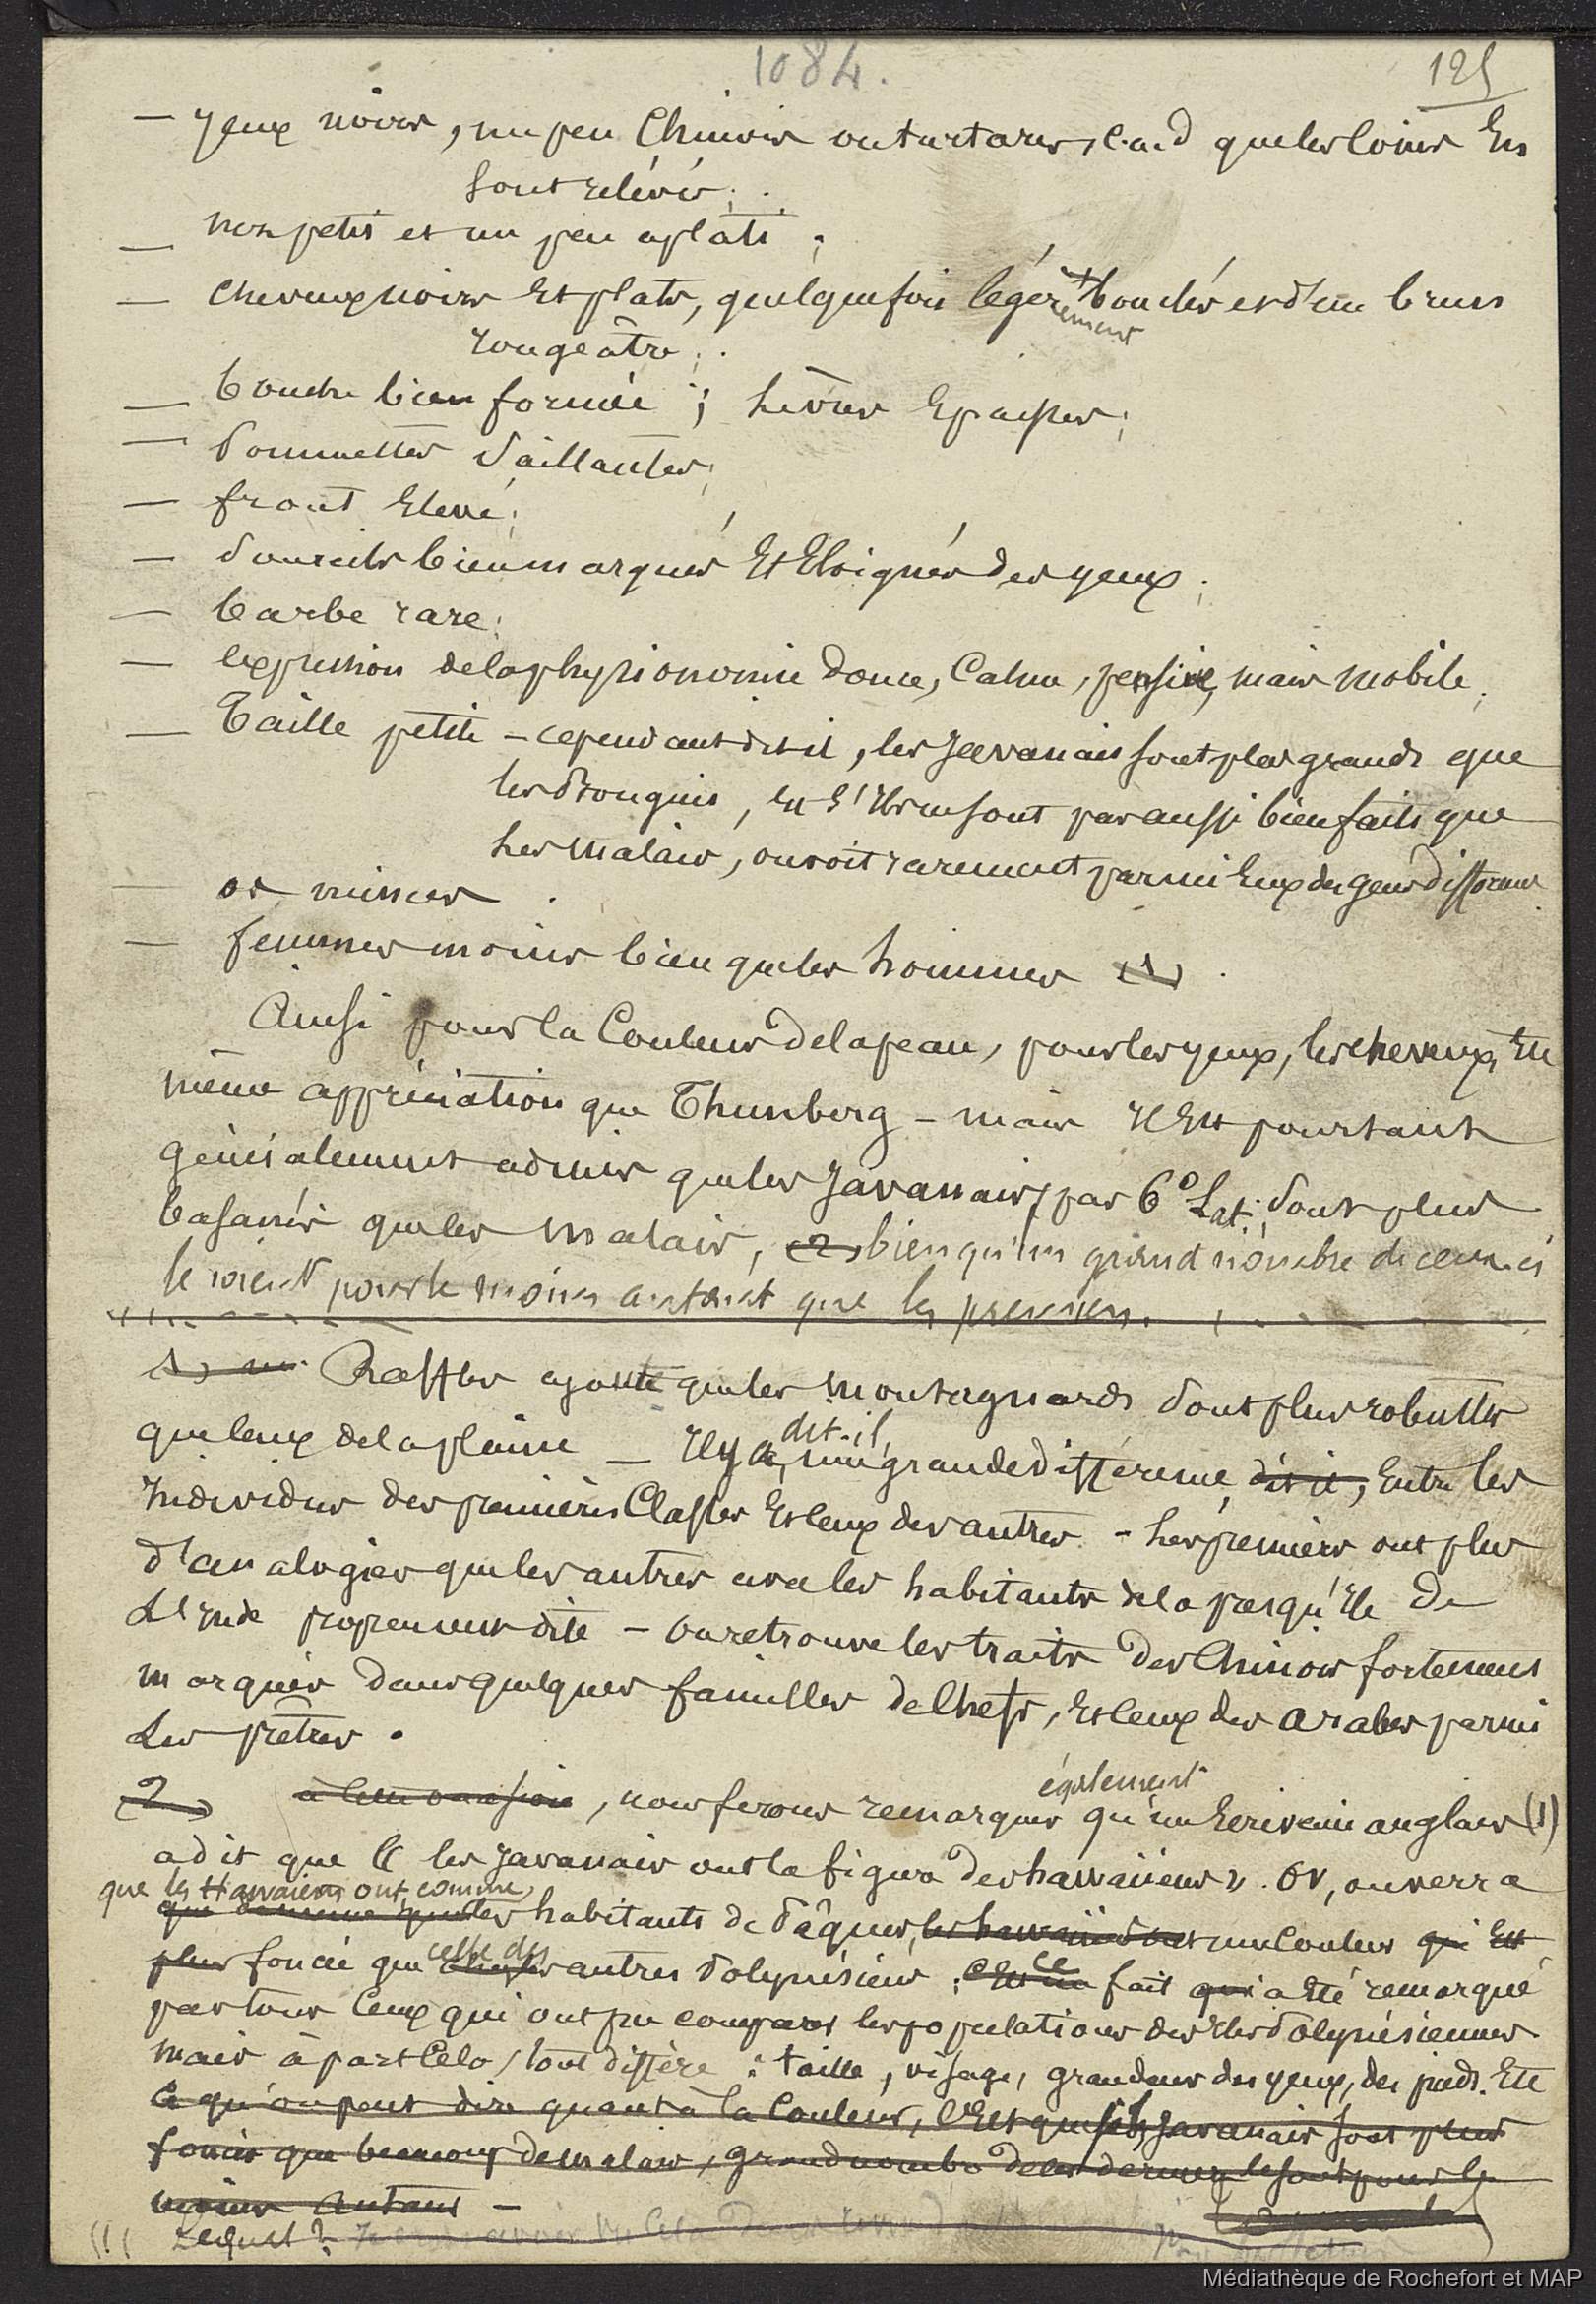 1084. 125
— yeux noirs, un peu Chinois ou tartares, c.a.d que les coins en
sont relevés;
— nez petit et un peu aplati;
— cheveux noirs et plats, quelquefois légèrement bouclés et d'un brun
rougeâtre;
— bouche bien formée; lèvres épaisses;
— Pommettes saillantes;
— front élevé;
— sourcils bien marqués et éloignés des yeux;
— barbe rare;
— expression de la physionomie douce, calme, pensive, mais mobile;
— Taille petite – cependant dit-il, les Javanais sont plus grands que
les Bouguis, et s'ils ne sont pas aussi bien faits que
les malais, on voit rarement parmi eux des gens difformes.
— os minces.
— femmes moins bien que les hommes (1).
Ainsi pour la Couleur de la peau, pour les yeux, les cheveux, etc
même appréciation que Thunberg – mais il est pourtant
généralement admis que les Javanais, par 6° Lat. sont plus
basanés que les malais, (2) bien qu'un grand nombre de ceux-ci
le soient pour le moins autant que les premiers.
(1) Raffles ajoute que les montagnards sont plus robustes
que ceux de la plaine — Il y a, dit-il, une grande différence, dit-il, entre les
individus des premières Classes et ceux des autres. – Les premiers ont plus
d'analogies que les autres avec les habitants de la presqu'île de
L'Inde proprement dite – on retrouve les traits des Chinois fortement
marqués dans quelques familles de Chefs, et ceux des arabes parmi
Les prêtres.
(2) à cette occasion, nous ferons remarquer également qu'un écrivain anglais (1)
a dit que « les Javanais ont la figure des hawaiiens ». Or, on verra
que les Hawaiiens ont, comme
les habitants de Pâques, une Couleur qui est
plus foncée que celle des autres Polynésiens; ce fait qui a été remarqué
par tous ceux qui ont pu comparer les populations des îles Polynésiennes
mais à part Cela, tout diffère : taille, visage, grandeur des yeux, des pieds. etc
Ce qu'on peut dire quant à la Couleur, c'est que si les Javanais sont plus
foncés que beaucoup de malais, grand nombre de ces derniers le sont pour le
moins autant –
Médiathèque de Rochefort et MAP